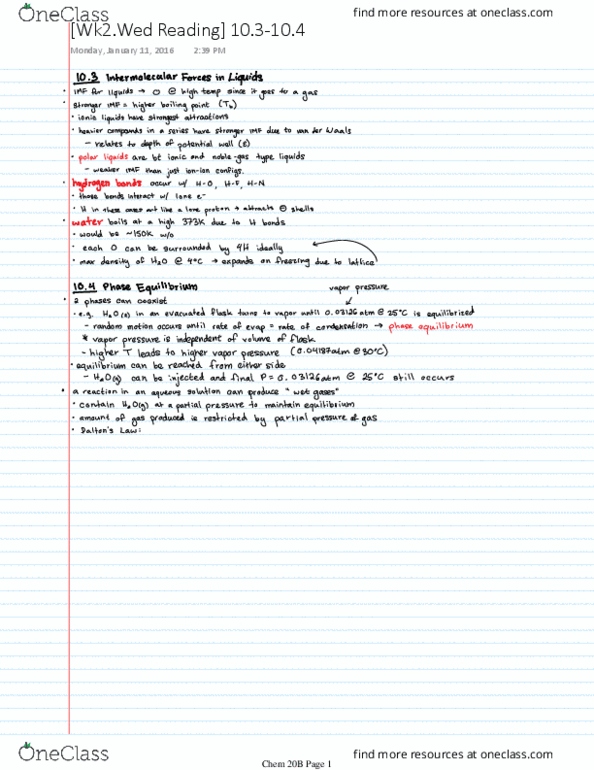 OneClass
find more resources at oneclass.com
[Wk2.Wed Reading] 10.3-10.4
Monday, January 11, 2016 2:39 PM
10.3 Intermolecular Forces in Liquids
• IMF for liquids → 0 @ high temp since it goes to a gas
• Stronger IMF = higher boiling point (Tb)
• ionic liquids have strongest attractions
• heavier compounds in a series have stronger IMF due to van der Waals
– relates to depth of potential well (ε)
• polar liquids are bt ionic and noble-gas type liquids
– weaker IMF than just ion-ion configs.
• hydrogen bonds occur w/ H-O, H-F, H-N
• those bonds interact w/ lone e-
• H in these cases act like a lone proton → attracts ⊖ shells
• water boils at a high 373K due to H bonds
• would be ~150K w/o
• each O can be surrounded by 4H ideally
• max density of H₂O @ 4°C → expands on freezing due to lattice
10.4 Phase Equilibrium
vapor pressure
• 2 phases can coexist
• e.g. H₂O(l) in an evacuated flask turns to vapor until 0.03126 atm @ 25°C is equilibrized
– random motion occurs until rate of evap = rate of condensation → phase equilibrium
* vapor pressure is independent of volume of flask
– higher T leads to higher vapor pressure (0.04187atm @ 30°C)
• equilibrium can be reached from either side
– H₂O(g) can be injected and final P = 0.03126 atm @ 25°C still occurs
• a reaction in an aqueous solution can produce "wet gases"
• contain H₂O(g) at a partial pressure to maintain equilibrium
• amount of gas produced is restricted by partial pressure of gas
• Dalton's Law:
OneClass
Chem 20B Page 1
find more resources at oneclass.com